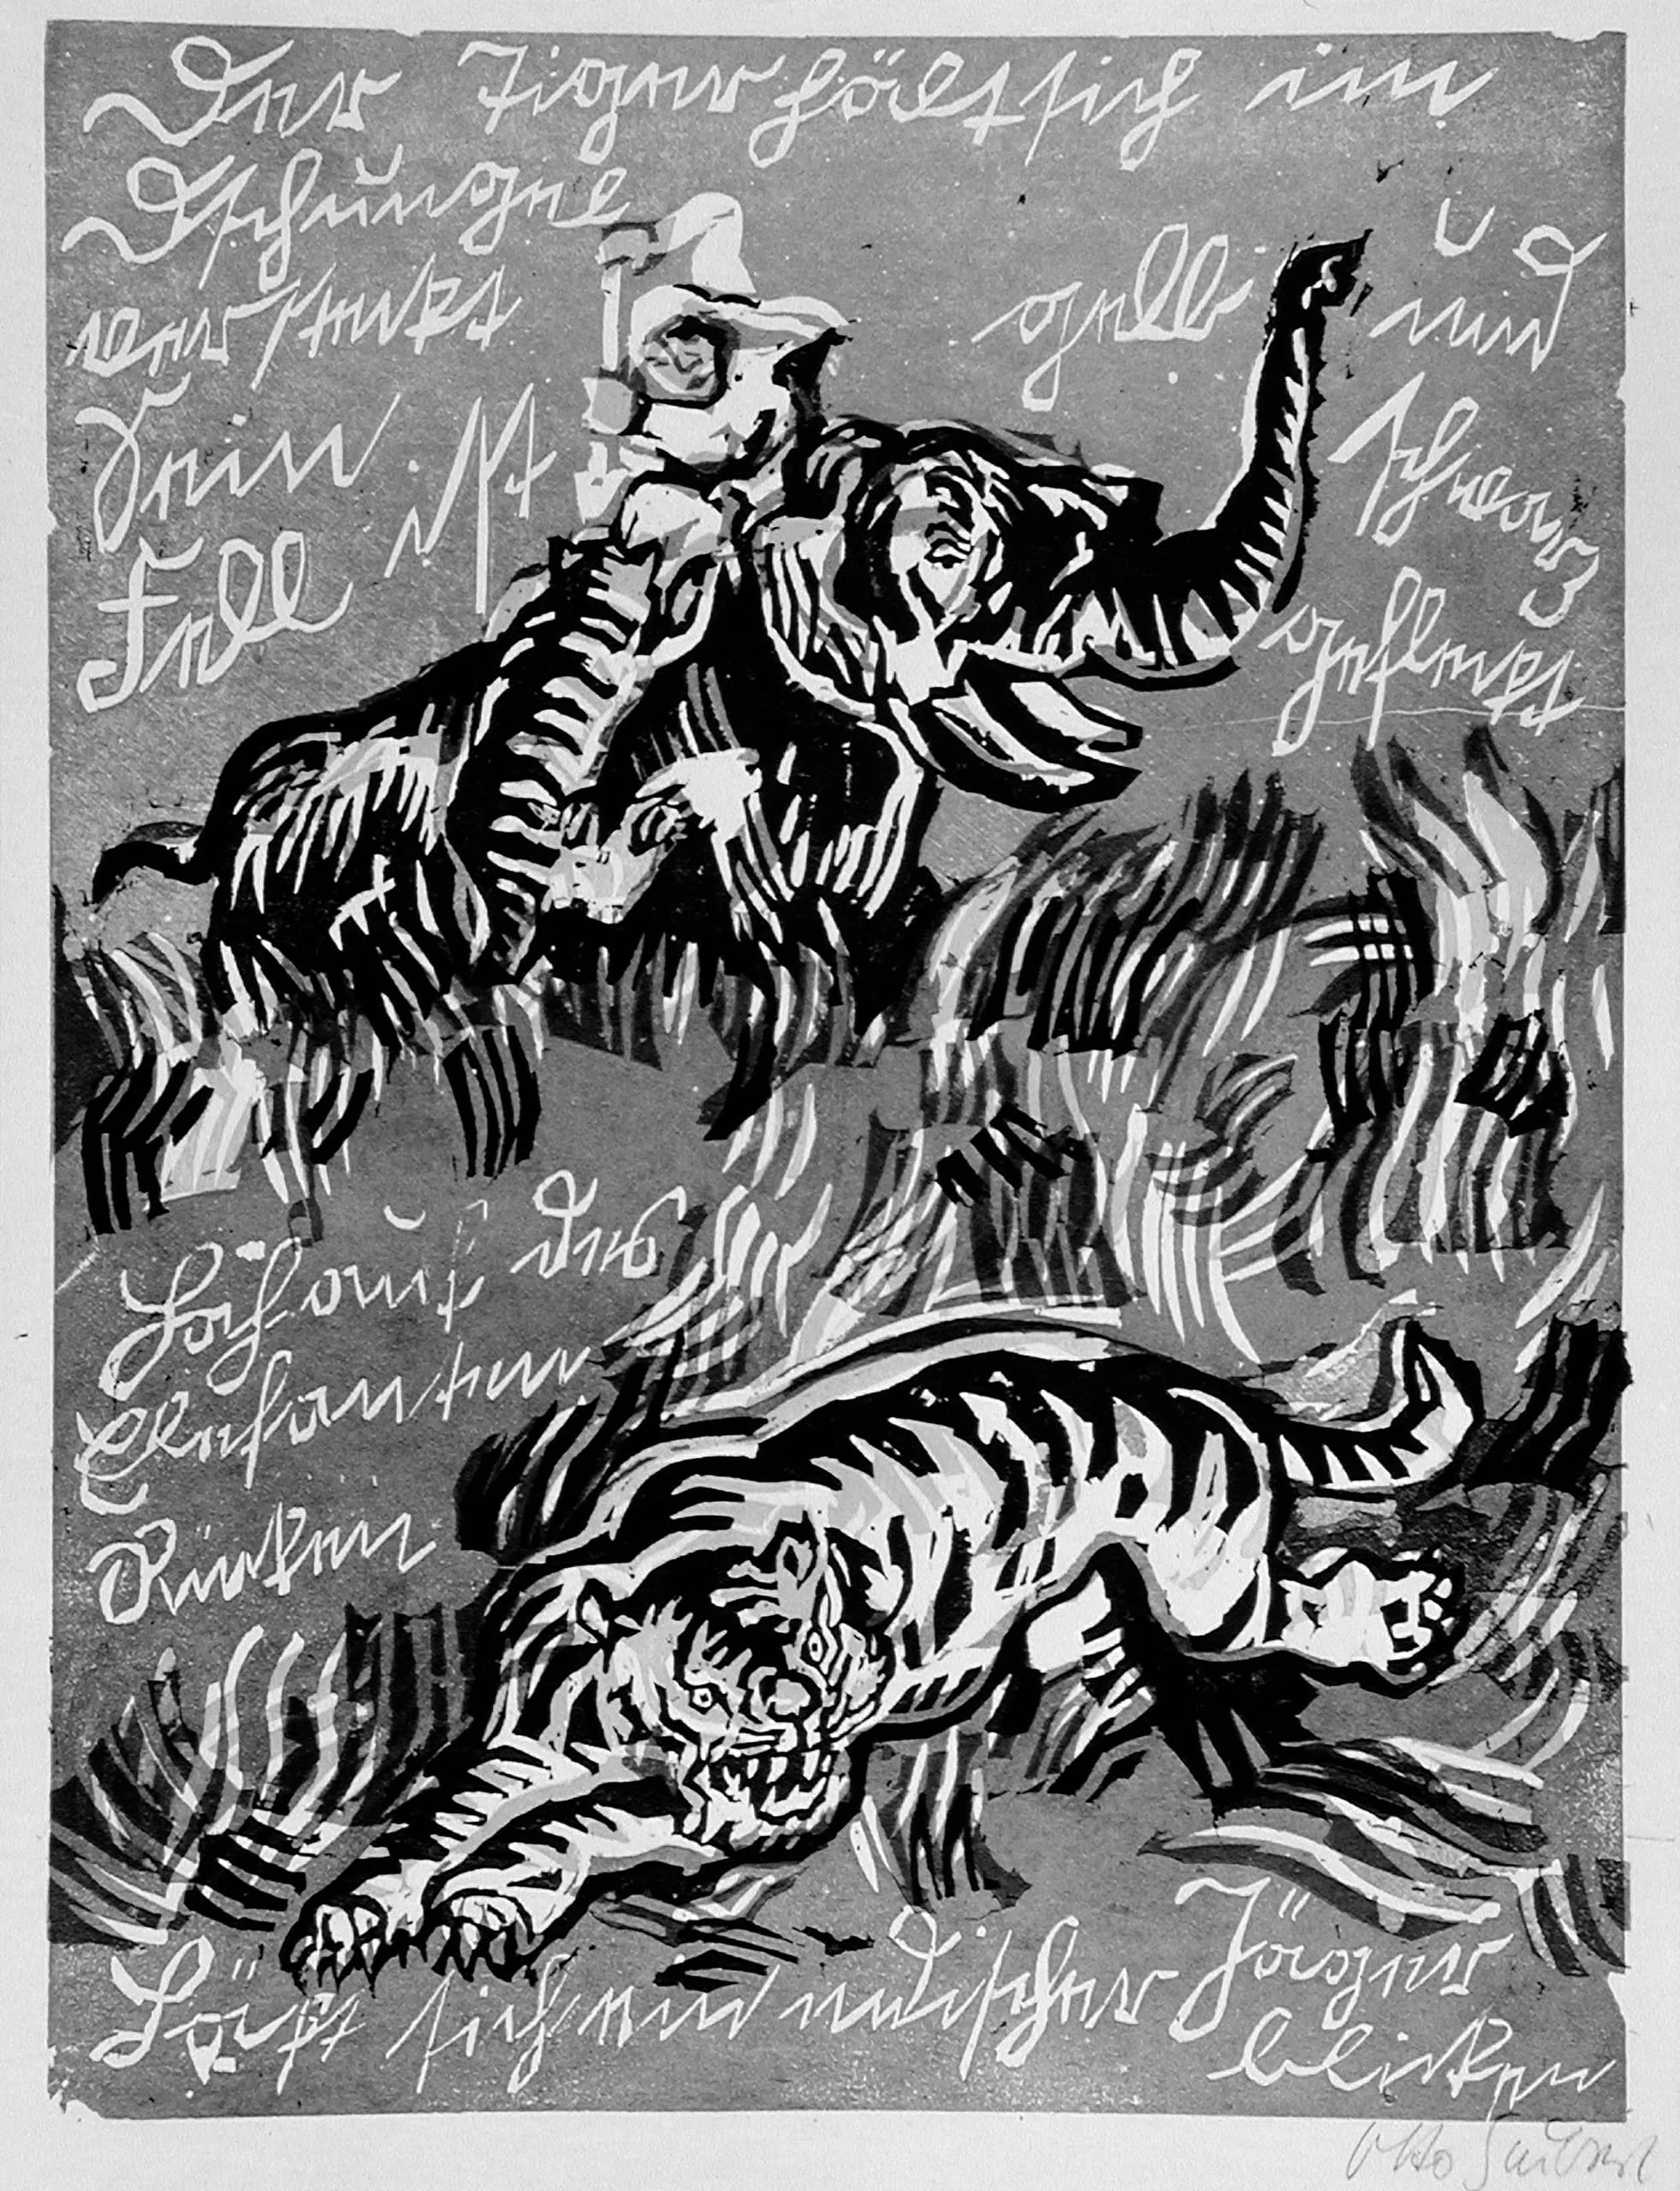 Der Tiger hält sich im
Dschungel
versteckt
Sein
Fell ist
gelb und
schwarz
gefleckt
Hoch auf des
Elefanten
Rücken
Läßt sich ein indischer Jäger
blicken
Otto